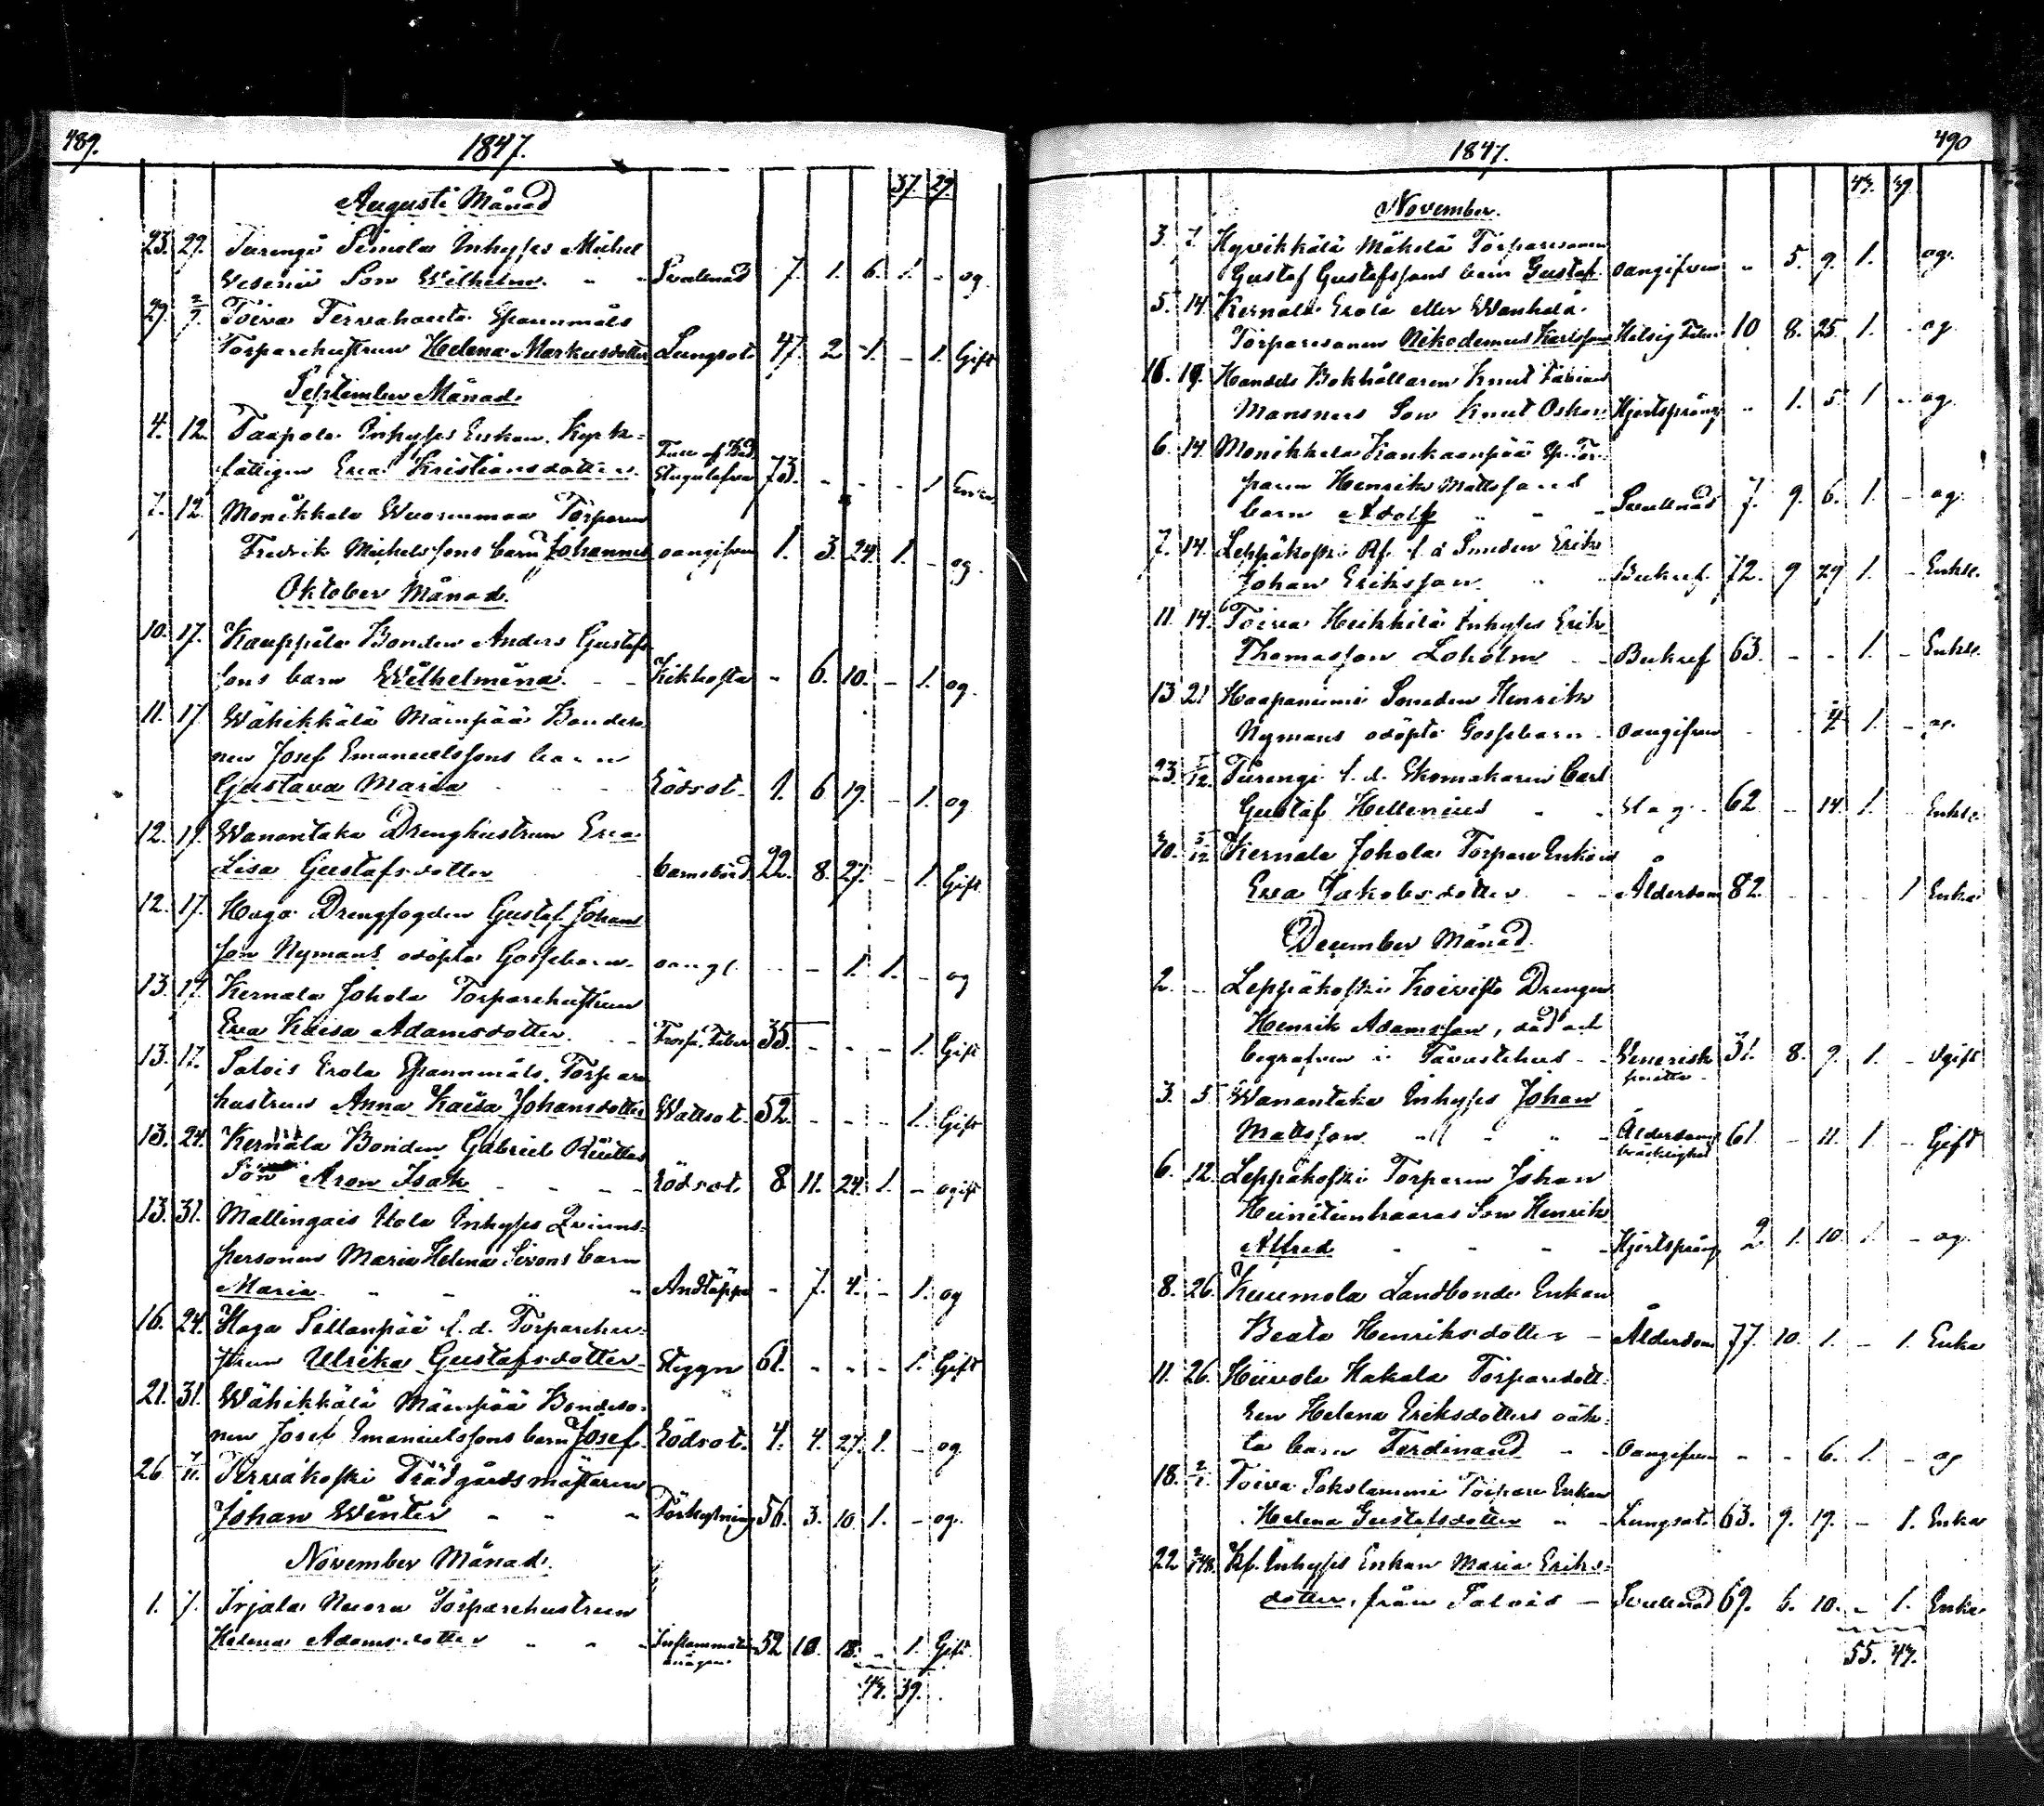 489.
1847.
37. 29.
Augusti Månad
23. 29. Turengi Simola Inhyses Mickel
Wesenii Son Wilhelm - - Svullnad 7. 1. 6. 1. - og.
29. 2/9. Toiva Tervahauta Spannmåls
Torparehustrun Helena Markusdotter Lungsot 47. 2 1. - 1. Gift
September Månad.
4. 12. Taapola Inhyses Enkan. Kyrk=
fattigen Eva Kristiansdotter. 73. - - - 1 Enka
7. 12. Monikkala Wuorenmaa Torparen
Fredrik Michelssons barn Johannes oangifven 1. 3. 24. 1. - og.
Oktober Månad.
10. 17. Kauppila Bonden Anders Gustafs
sons barn Wilhelmina. - - Kikhosta - 6. 10. - 1. og.
11. 17. Wähikkälä Mäenpää Bondeso
nen Josef Emanuelssons barn
Gustava Maria - - Rödsot. 1. 6 19. - 1. og
12. 17. Wanantaka Drenghustrun Eva
Lisa Gustafsdotter - barnsbörd. 22. 8. 27. - 1. Gift
12. 17. Haga Drengfogden Gustaf Johans
son Nymans odöpta Gossebarn. oangf. - - 1. 1. - og
13. 17. Kernala Johola Torparehustrun
Eva Kaisa Adamsdotter. - - Frossa. Feber 35. - - - 1. Gift
13. 17. Salois Erola Spannmåls. Torpare
hustrun Anna Kaisa Johansdotter Wattsot. 52. - - - 1. Gift
13. 24. Kernala Bonden Gabriel
Son Aron Isak - - - Rödsot. 8 11. 24. 1. - ogift
13. 31. Mallingais Utola Inhyses Qvinns=
personen Maria Helena Sivons barn
Maria. - - - - Andtäppa - 7. 4. - 1. og
16. 24. Haga Sillanpää f.d. Torparehu=
strun Ulrika Gustafsdotter. Styggn 61. - - - 1. Gift
21. 31. Wähikkälä Mäenpää Bondeso=
nen Josef Emanuelssons barn Josef. Rödsot. 4. 4. 27. 1. - og.
26. 7/11. Tervakoski Trädgårdsmästaren
Johan Winter - - - Förkylning 56. 3. 10. 1. - og.
November Månad.
1. 7. Irjala Nuora Torparehustrun
Helena Adamsdotter - - - 52 10. 18. - 1. Gift.
44. 39.
1847.
490
44. 39.
November.
3. 7. Hyvikkälä Mäkelä Torparesonen
Gustaf Gustafssons barn Gustaf. oangifven - 5. 9. 1. og.
5. 14. Kernala Erola eller Wanhala
Torparesonen Nikodemus Karlsson Hetsig Feber 10 8. 25. 1. - og
16. 19. Handels Bokhållaren Knut Fabian
Mansners Son Knut Oskar Hjertsprång - 1. 5. 1 - og.
6. 14. Monikkala Kankaanpää Sp. Tor=
paren Henrik Mattssons
barn Adolf - - - Svullnad 7. 9. 6. 1. - og.
7. 14. Leppäkoski Rf. f.d. Smeden Erik
Johan Eriksson. - - Bukref. 72. 9 29 1. - Enkl.
11. 14. Toiva Heikkilä Inhyses Erik
Thomasson Loholm - - Bukref 63. - - 1. - Enkl.
13 21 Haapaniemi Smeden Henrik
Nymans odöpta Gossebarn. oangifven - - 4 1. - og.
23. 5/12. Turengi f.d. Skomakaren Carl
Gustaf Hellenius - - Slag. 62. - 14. 1. Enkl.
30. 5/12 Kernala Johola Torpare Enkan
Eva Jakobsdotter - - Ålderdom 82. - - - 1 Enka
December Månad.
2. - Leppäkoski Koivisto Drengen
Henrik Adamsson, död och
begrafven i Tavastehus - Venerisk 31. 8. 9. 1. - Ogift
3. 5 Wanantaka Inhyses Johan
Mattsson - - - Ålderdoms bräcklighet 61. - 11. 1. - Gift
6. 12. Leppäkoski Torparen Johan
Son Henrik
Alfred - - - Hjertsprång 2 1. 10. 1. - og.
8. 26. Kuumola Landbonde Enkan
Beata Henriksdotter - Ålderdom 77. 10. 1. - 1. Enka
11. 26. Hiivola Hakala Torparedott
ren Helena Eriksdotters oäk=
ta barn Ferdinand - - Oangifven - - 6. 1. - og
18. 2/1. Toiva Torpare Enkan
Helena Gustafsdotter - - Lungsot. 63. 9. 19. - 1. Enka
22 Kf. Inhyses Enkan Maria Eriks=
dotter, från Salois - Svullnad 69. 6. 10. - 1. Enka
55. 44.